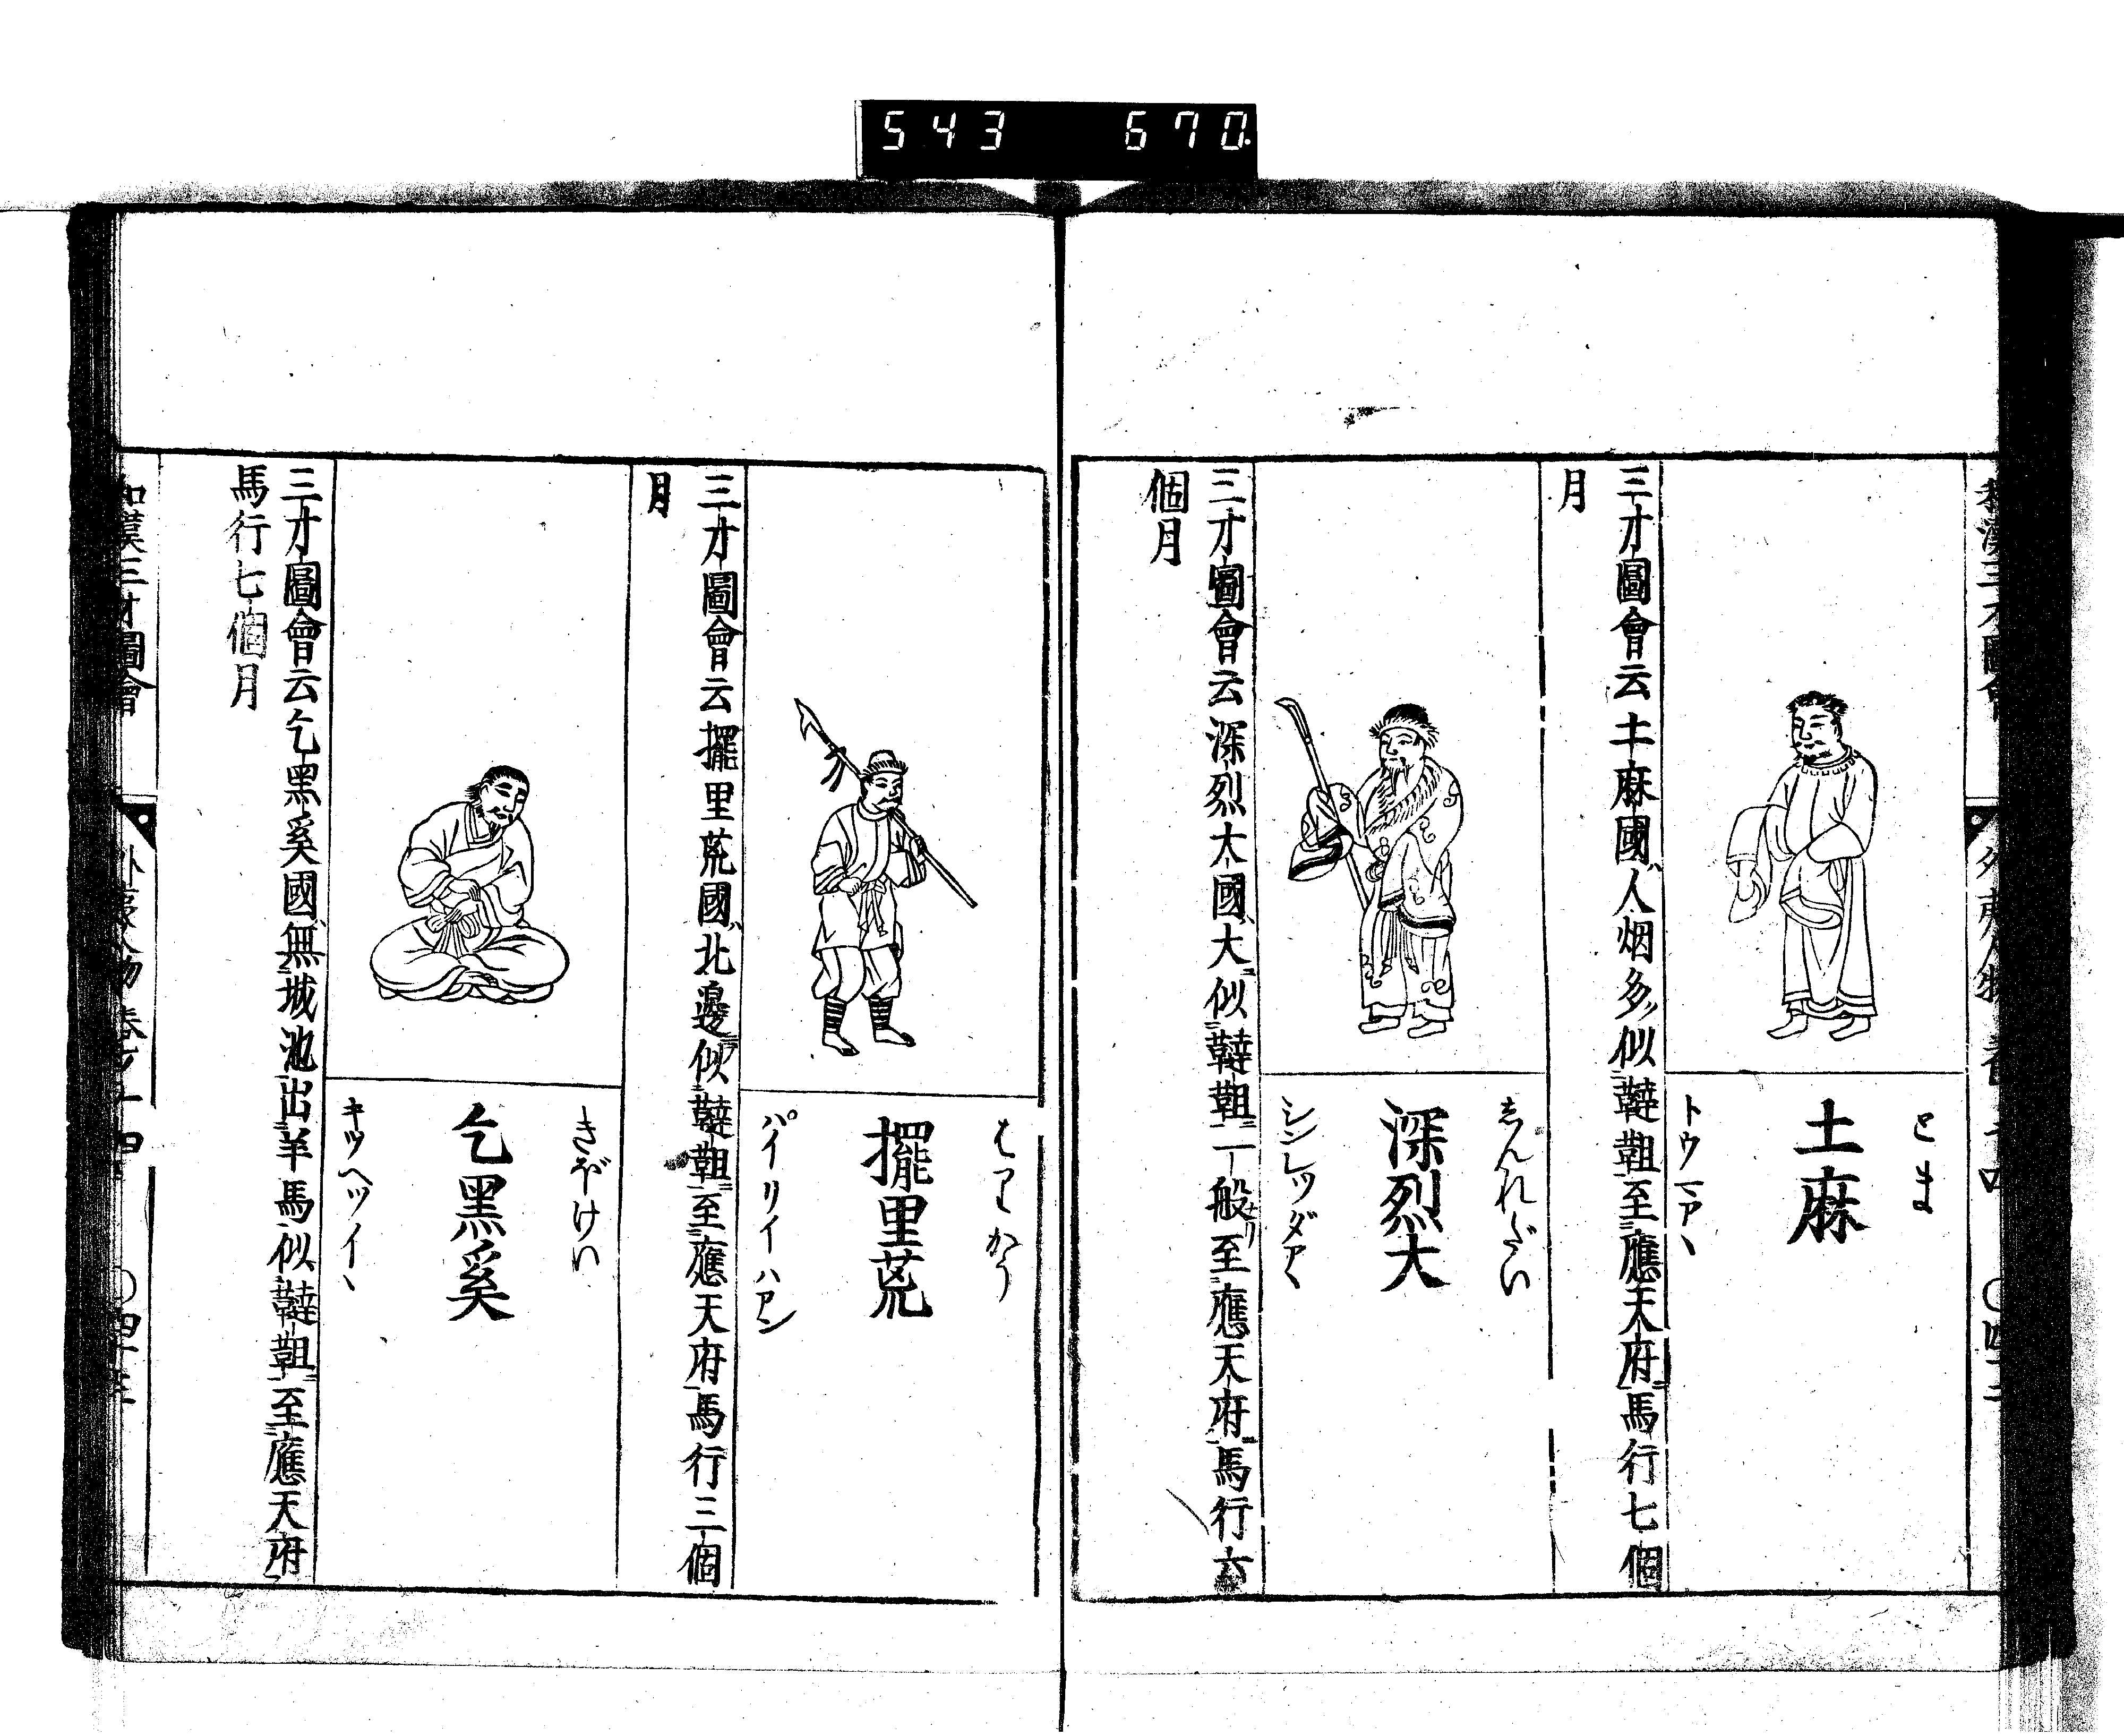 543 670.
和漢三才圖會 外夷人物 卷十四 〇四二
とま
土麻
トウマアヽ
三才圖會云土麻國人烟多似韃靼至應天府馬行七個
月
しんれつだい
深烈大
シンレツダアヽ
三才圖會云深烈大國大似韃靼一般ナリ至應天府馬行六
個月
はりかう
擺里荒
パイリイハアン
三才圖會云擺里荒國北邊似韃靼至應天府馬行三個
月
きつけい
乞黑奚
キツヘツイヽ
三才圖會云乞黑奚國無城池出羊馬似韃靼至應天府
馬行七個月
和漢三才圖會 外夷人物 卷十四 〇四三